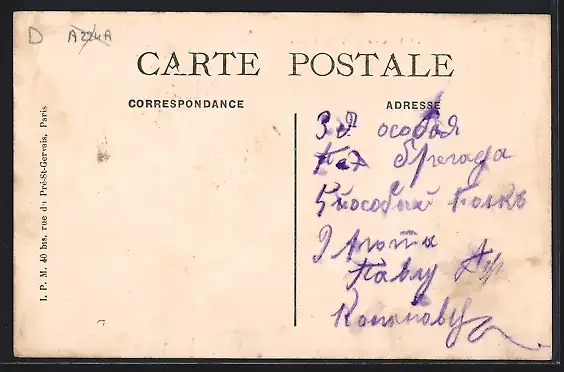 D
CARTE POSTALE
CORRESPONDANCE
ADRESSE
I. P. M. 40 bis. rue du Pré-St-Gervais, Paris
3я особая
Пех бригада
5й особый полкъ
9 рота
Павлу
Кононову